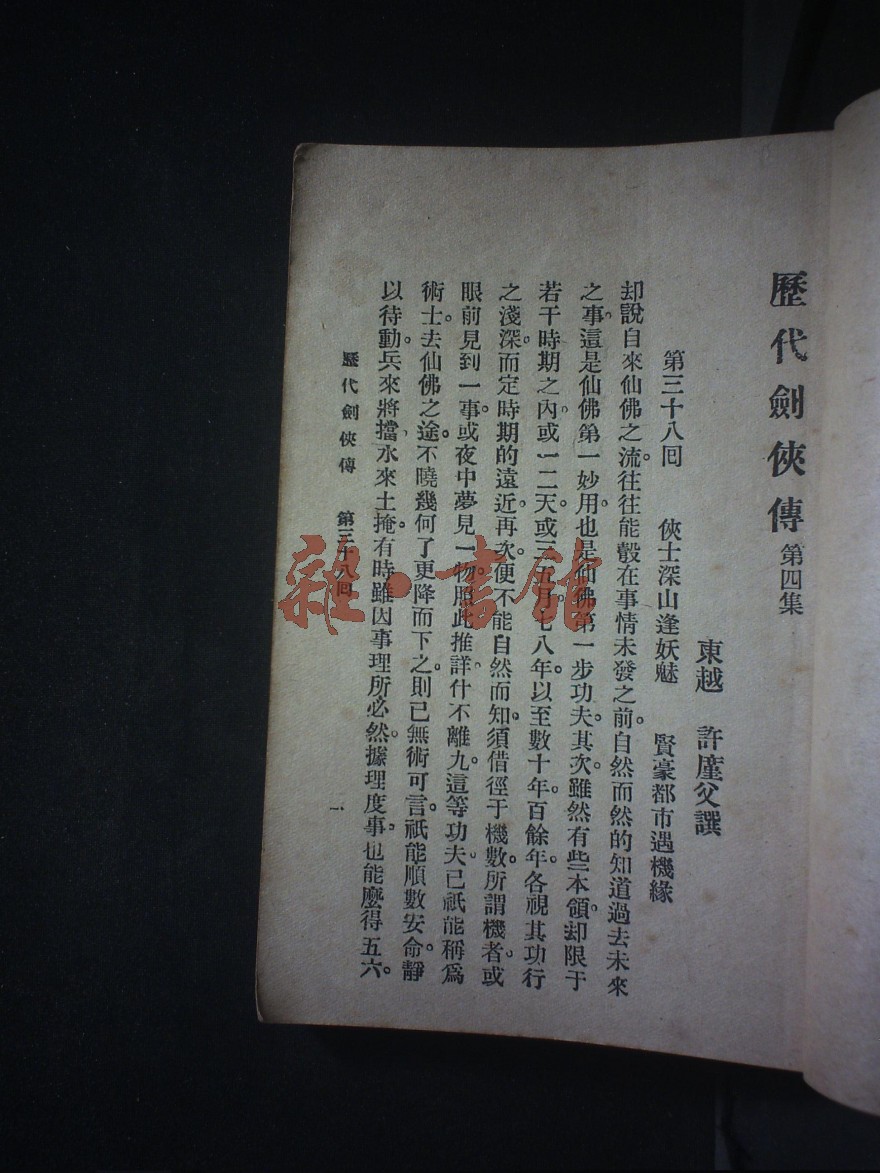 歷代劍俠傳 第四集
東越 許廑父譔
第三十八回 俠士深山逢妖魅 賢豪都市遇機緣
却說自來仙佛之流。往往能彀在事情未發之前。自然而然的知道過去未來
之事。這是仙佛第一妙用。也是仙佛第一步功夫。其次雖然有些本領。却限于
若干時期之內。或一二天。或三五月。七八年。以至數十年。百餘年。各視其功行
之淺深。而定時期的遠近。再次。便不能自然而知。須借徑于機數。所謂機者。或
眼前見到一事。或夜中夢見一物。照此推詳。什不離九。這等功夫。已祇能稱爲
術士。去仙佛之途。不曉幾何了。更降而下之。則已無術可言。祇能順數安命。靜
以待動。兵來將擋。水來土掩。有時雖因事理所必然。據理度事。也能麼得五六。
歷代劍俠傳 第三十八回 一
雜·書館